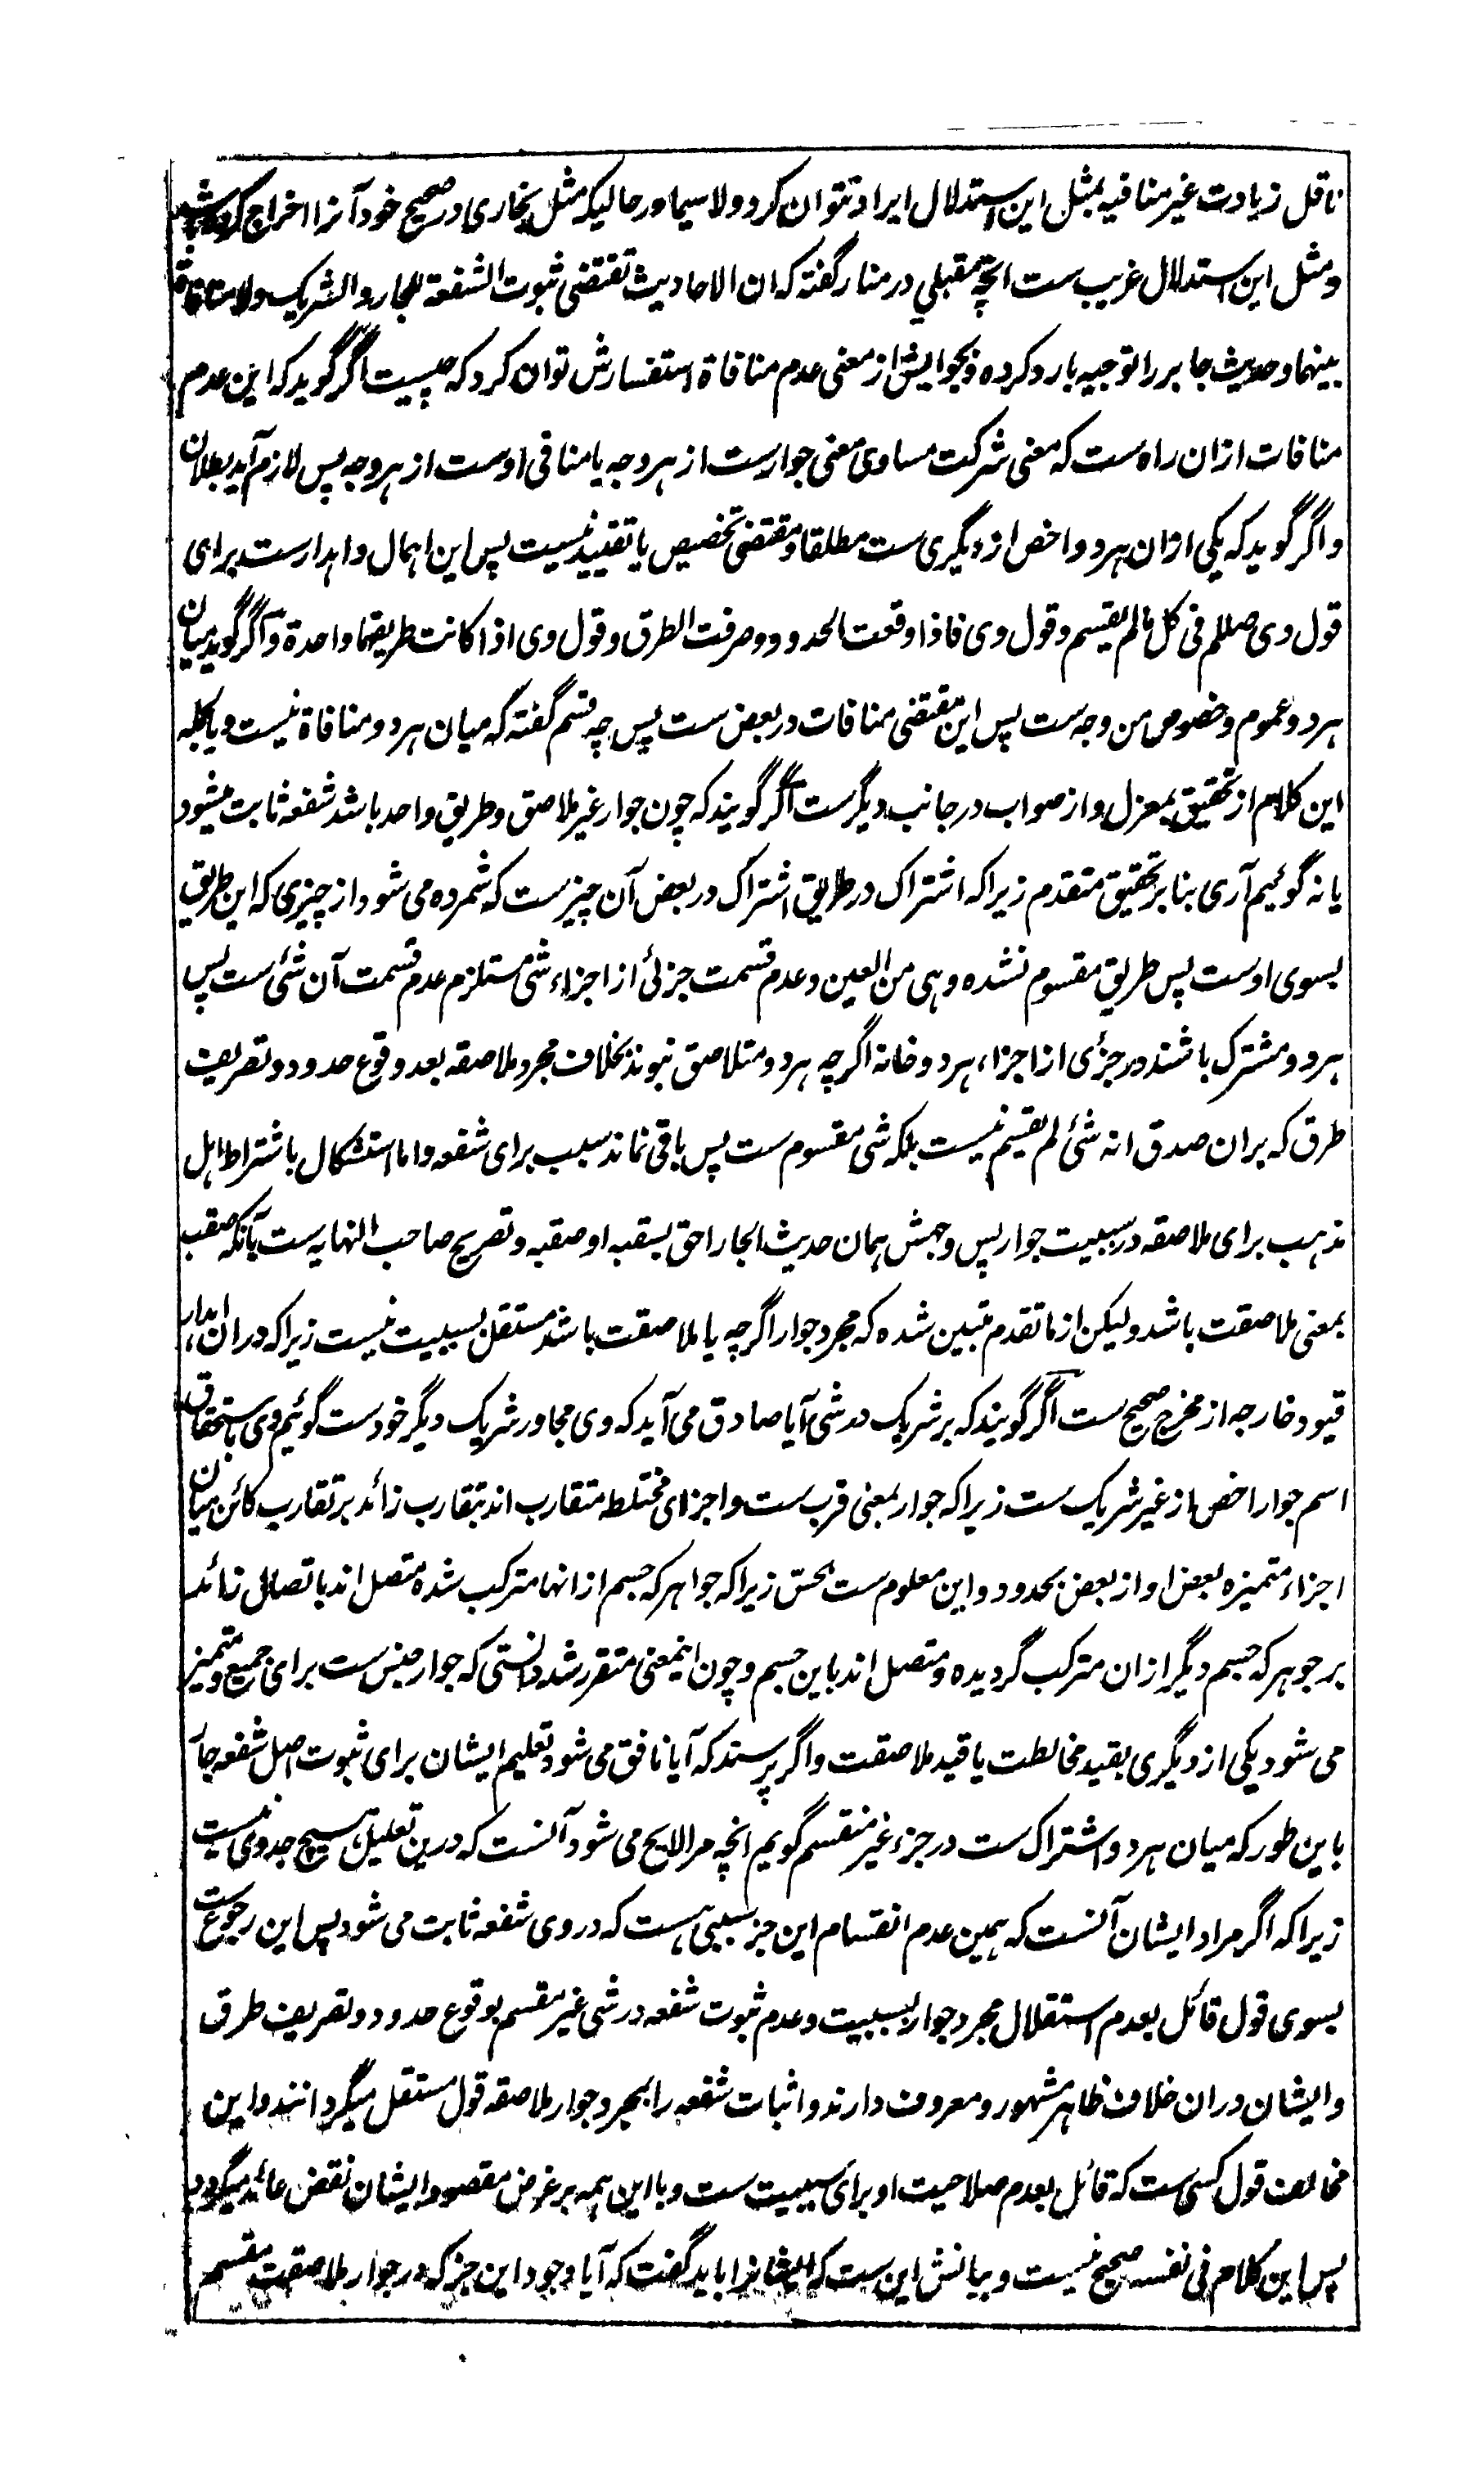 ناقل زیادت غیر منافیه بمثل این استدلال ایراد نتوان کرد ولا سیما در حالیکه مثل بخاری در صحیح خود آنرا اخراج کرده باشد
و مثل این استدلال غریب ست انچه مقبلی در منار گفته که ان الاحادیث تقتضی ثبوت الشفعة للجار والشریک ولا منافاة
بینهما و حدیث جابر را توجیه بارد کرده و بجوابش از معنی عدم منافاة استفسارش توان کرد که چیست اگر گوید که این عدم
منافات ازان راه ست که معنی شرکت مساوی معنی جوارست از هر وجه یا منافی اوست از هر وجه پس لازم آید بطلان
و اگر گوید که یکی ازان هر دو اخص از دیگری ست مطلقا و مقتضی تخصیص یا تقیید نیست پس این اهمال و اهدارست برای
قول وی صللم فی کل مالم یقسم و قول وی فاذا وقعت الحدود و صرفت الطرق و قول وی اذا کانت طریقهما واحدة و اگر گوید میان
هر دو عموم و خصوص من وجه ست پس این مقتضی منافات در بعض ست پس چه قسم گفته که میان هر دو منافاة نیست و بالجمله
این کلام از تحقیق بمعزل و از صواب در جانب دیگرست اگر گویند که چون جوار غیر ملاصق و طریق واحد باشد شفعه ثابت میشود
یا نه گوئیم آری بنا بر تحقیق متقدم زیرا که اشتراک در طریق اشتراک در بعض آن چیزست که شمرده می شود از چیزی که این طریق
بسوی اوست پس طریق مقسوم نشده و هی من العین و عدم قسمت جزئی از اجزاء شی مستلزم عدم قسمت آن شئ ست پس
هر دو مشترک باشند در جزئی از اجزاء هر دو خانه اگرچه هر دو متلاصق نبوند بخلاف مجرد ملاصقه بعد وقوع حدود و تصریف
طرق که بران صدق انه شئ لم یقسم نیست بلکه شی مقسوم ست پس باقی نماند سبب برای شفعه و اما استشکال باشتراط اهل
مذهب برای ملاصقه در سببیت جوار پس وجهش همان حدیث الجار احق بسقبه او صقبه و تصریح صاحب النهایه ست بآنکه صقب
بمعنی ملاصقت باشد ولیکن از ما تقدم متبین شده که مجرد جوار اگرچه با ملاصقت باشد مستقل بسببیت نیست زیرا که دران اهدار
قیود خارجه از مخرج صحیح ست اگر گویند که بر شریک در شی آیا صادق می آید که وی مجاور شریک دیگر خودست گوئیم وی باستحقاق
اسم جوار اخص از غیر شریک ست زیرا که جوار بمعنی قرب ست و اجزای مختلط متقارب اند بتقارب زائد بر تقارب کائن میان
اجزاء متمیزه بعض او از بعض بحدود و این معلوم ست بحس زیرا که جواهر که جسم از انها مترکب شده متصل اند باتصالی زائد
بر جوهر که جسم دیگر ازان مترکب گردیده و متصل اند باین جسم و چون اینمعنی متقرر شد دانستی که جوار جنس ست برای جمیع و متمیز
می شود یکی از دیگری بقید مخالطت یا قید ملاصقت و اگر پرسند که آیا نافق می شود تعلیم ایشان برای ثبوت اصل شفعه جار
باین طور که میان هر دو اشتراک ست در جزء غیر منقسم گویم انچه مرا لایح می شود آنست که درین تعلیل هیچ جدوی نیست
زیرا که اگر مراد ایشان آنست که همین عدم انقسام این جز سببی هست که در وی شفعه ثابت می شود پس این رجوع ست
بسوی قول قائل بعدم استقلال مجرد جوار بسببیت و عدم ثبوت شفعه در شی غیر مقسم بوقوع حدود و تصریف طرق
و ایشان دران خلاف ظاهر مشهور و معروف دارند و اثبات شفعه را بمجرد جوار ملاصقه قول مستقل میگردانند و این
مخالف قول کسی ست که قائل بعدم صلاحیت او برای سببیت ست و با این همه بر غرض مقصود ایشان نقض عائد میگردد
پس این کلام فی نفسه صحیح نیست و بیانش این ست که ایشانرا باید گفت که آیا وجود این جز که در جوار ملاصقت مقسم